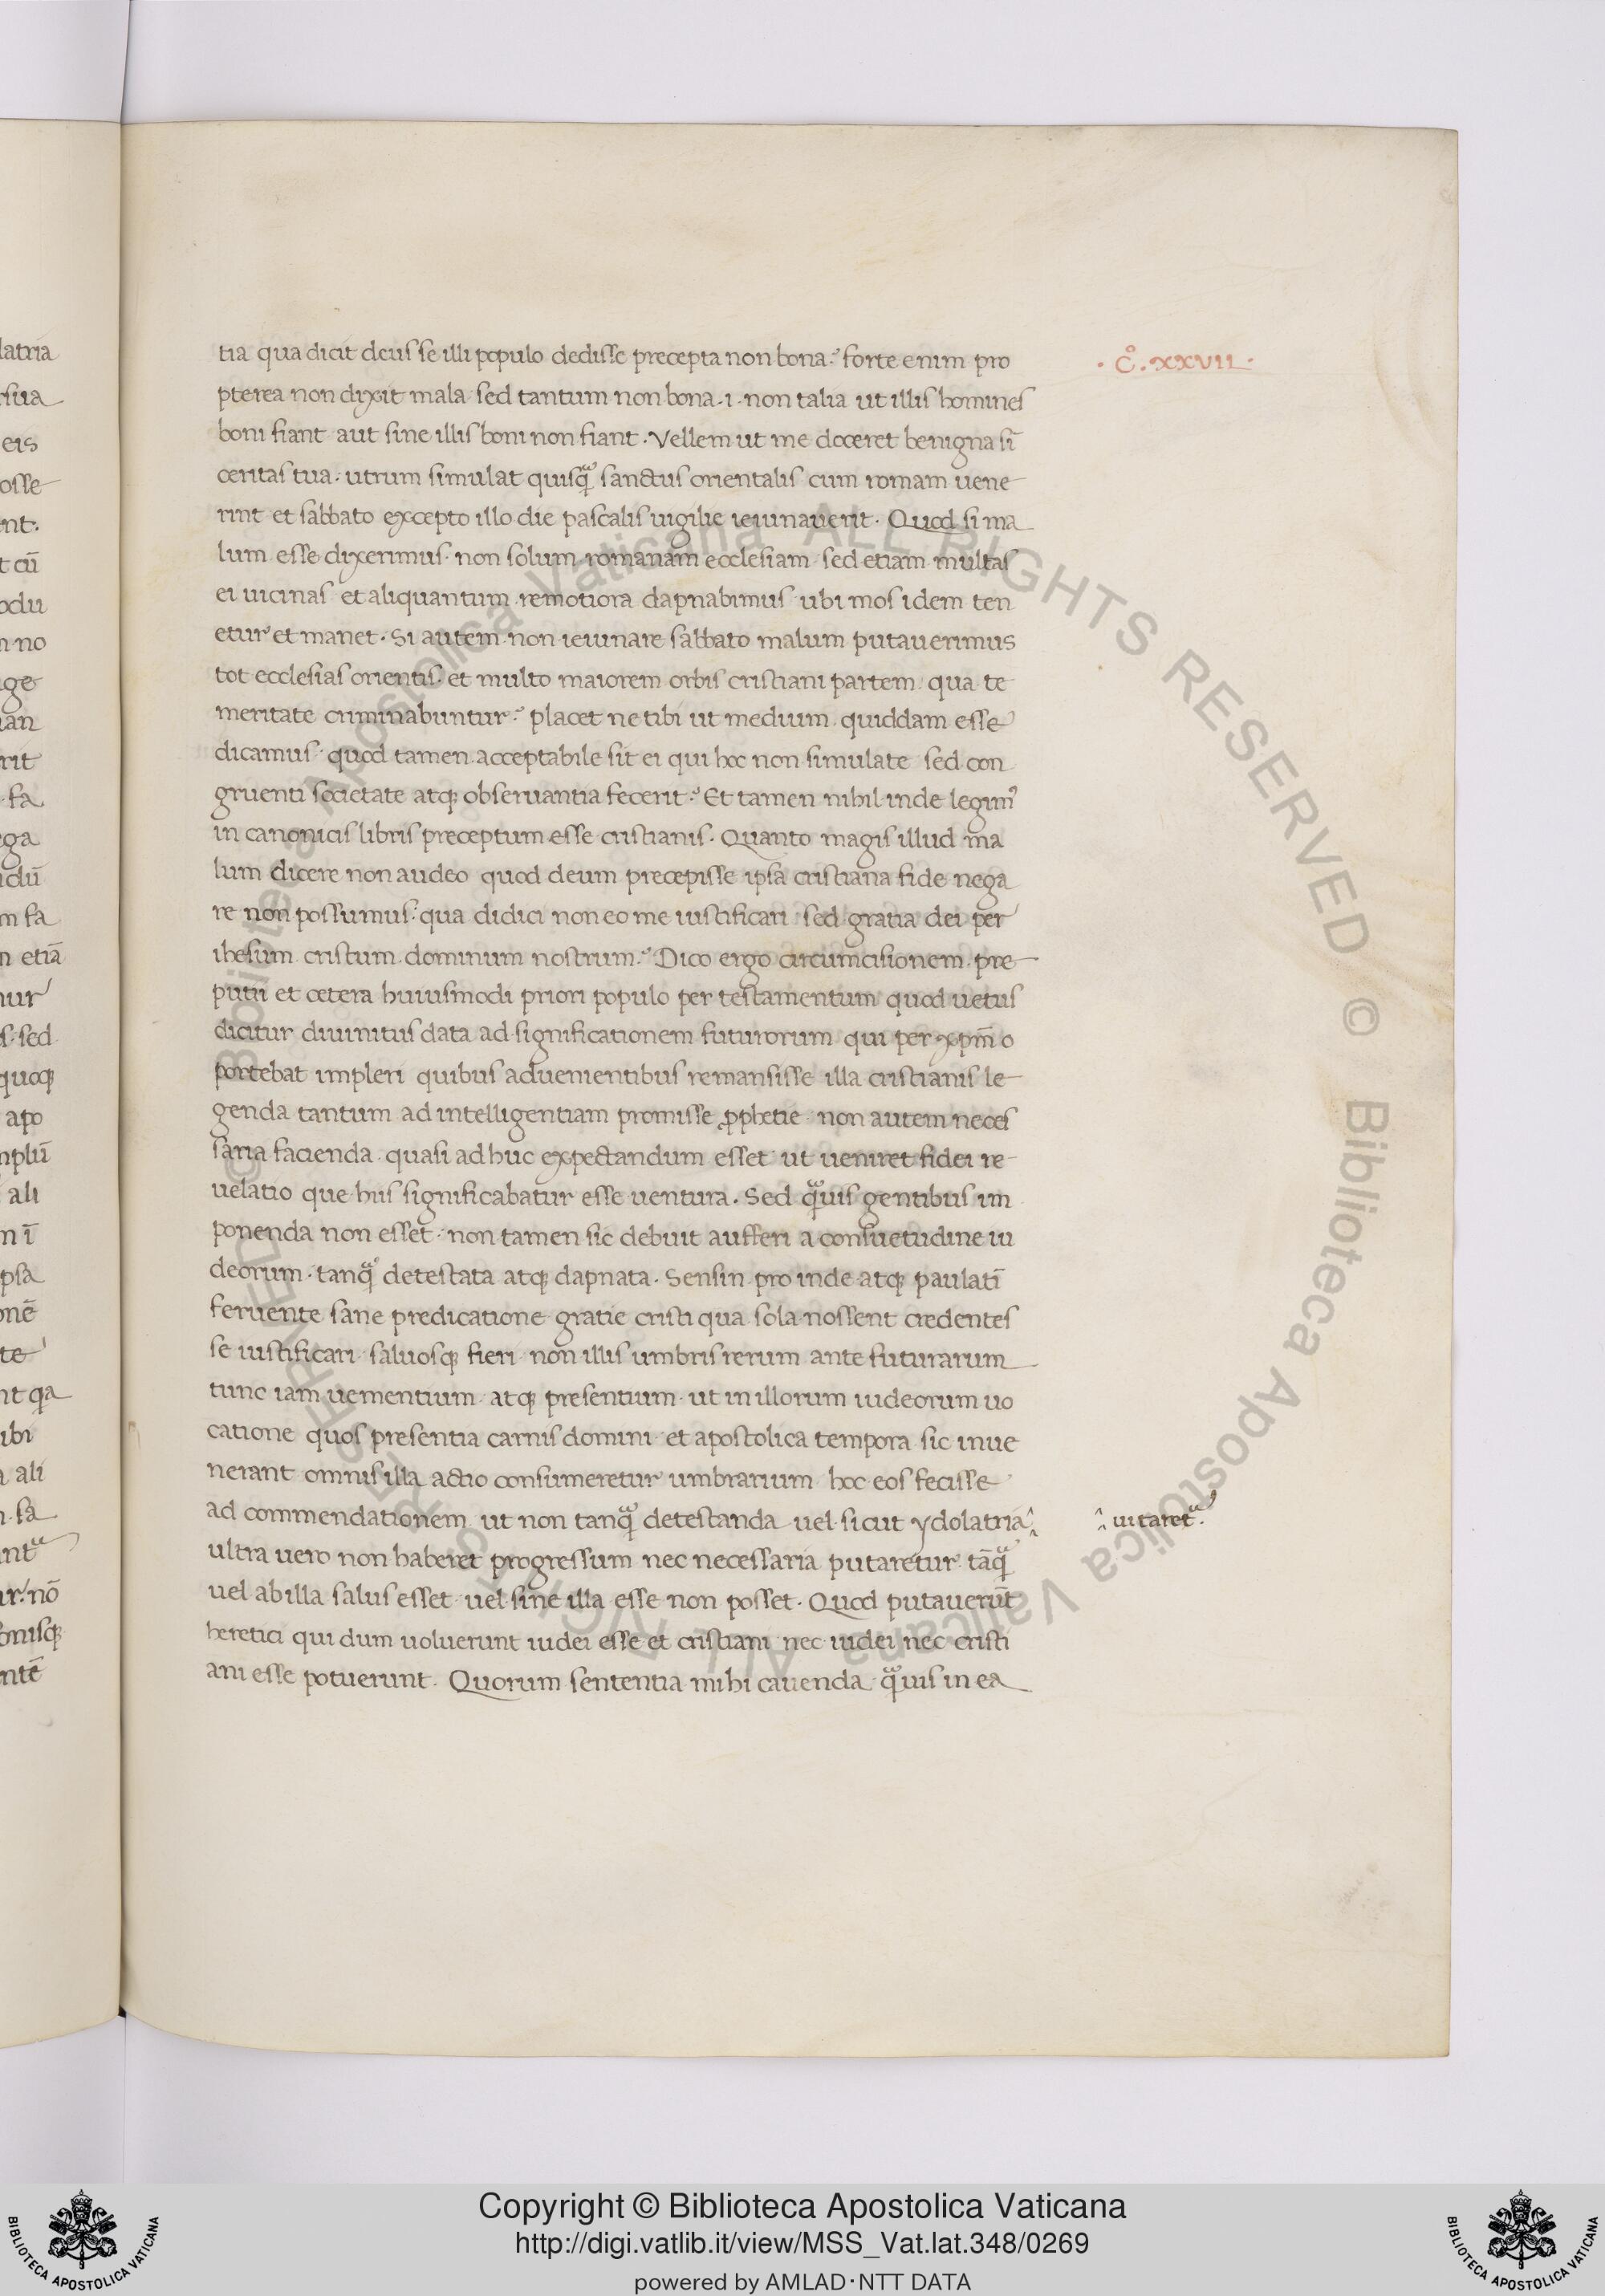 tia qua dicit deus se illi populo dedisse precepta non bona? forte enim pro
pterea non dixit mala sed tantum non bona · i · non talia ut illis homines
boni fiant aut sine illis boni non fiant · Vellem ut me doceret benigna sī
ceritas tua · utrum simulat quisqᷓ sanctus orientalis cum romam uene
rint et sabbato excepto illo die pascalis uigilie ieiunauerit · Quod si ma
lum esse dixerimus · non solum romanam ecclesiam sed etiam multas
ei uicinas et aliquantum remotiora dapnabimus ubi mos idem ten
etur et manet · Si autem non ieiunare sabbato malum putauerimus
tot ecclesias orientis · et multo maiorem orbis cristiani partem qua te
meritate criminabuntur? placet ne tibi ut medium quiddam esse
dicamus · quod tamen acceptabile sit ei qui hoc non simulate sed con
gruenti societate atqꝫ obseruantia fecerit? Et tamen nihil inde legimꝰ
in canonicis libris preceptum esse cristianis · Quanto magis illud ma
lum dicere non audeo quod deum precepisse ipsa cristiana fide nega
re non possumus · qua didici non eo me iustificari sed gratia dei per
ihesum cristum dominum nostrum? Dico ergo circumcisionem pre
putii et cetera huiusmodi priori populo per testamentum quod uetus
dicitur diuinitus data ad significationem futurorum qui per xpm̄ o
portebat impleri quibus aduenientibus remansisse illa cristianis le
genda tantum ad intelligentiam promisse ꝓphetie · non autem neces
saria facienda · quasi adhuc expectandum esset ut ueniret fidei re
uelatio que hiis significabatur esse uentura · Sed qᷓuis gentibus im
ponenda non esset · non tamen sic debuit aufferi a consuetudine iu
deorum · tanqᷓ detestata atqꝫ dapnata · Sensin pro inde atqꝫ paulatī
feruente sane predicatione gratie cristi qua sola nossent credentes
se iustificari saluosqꝫ fieri non illis umbris rerum ante futurarum
tunc iam uementium atqꝫ presentium · ut in illorum iudeorum uo
catione quos presentia carnis domini et apostolica tempora sic inue
nerant omnis illa actio consumeretur umbrarium hoc eos fecisse
ad commendationem ut non tanqᷓ detestanda uel sicut ydolatria
ultra uero non haberet progressum nec necessaria putaretur tāqᷓ
uel ab illa salus esset uel sine illa esse non posset · Quod putauerūt
heretici qui dum uoluerunt iudei esse et cristiani nec iudei nec cristi
ani esse potuerunt · Quorum sententia mihi cauenda qᷓuis in ea
· c̊ · xxvii ·
uitaretᷓ ·
latria
eis
osse
nt ·
t cū
odu
n no
rit
· fa
ega
m fa
n etiā
s · sed
quoqꝫ
apo
mplū
ali
psa
onē
te
ibi
ali
ur · nō
onisqꝫ
ntē
© Biblioteca Apostolica Vaticana ALL RIGHTS RESERVED © Biblioteca Apostolica Vaticana ALL RIGHTS RESERVED
Copyright © Biblioteca Apostolica Vaticana
http://digi.vatlib.it/view/MSS_Vat.lat.348/0269
powered by AMLAD·NTT DATA
BIBLIOTECA APOSTOLICA VATICANA
BIBLIOTECA APOSTOLICA VATICANA